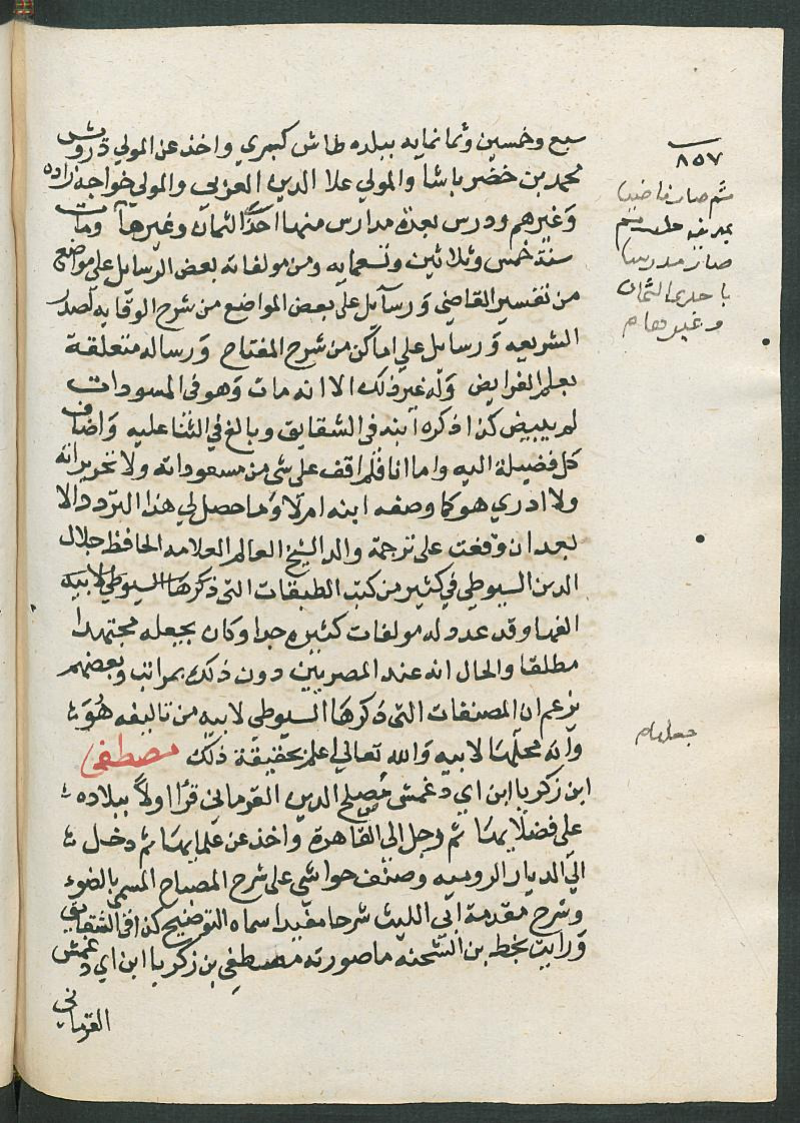 سبع وخمسين وثمانمايه ببلده طاش كبري واخذ عن المولي درويش
محمد بن خضر باشا والمولي علا الدين العزبي والمولي خواجه زاده
وغيرهم ودرس بعدة مدارس منها احد الثمان وغيرها ومات
سنة خمس وثلاثين وتسعمايه ومن مولفاته بعض الرسايل على مواضع
من تفسير القاضي ورسآيل على بعض المواضع من شرح الوقايه لصدر
الشريعه ورسايل علي اماكن من شرح المفتاح ورساله متعلقة
بعلم الفرايض وله غير ذلك الا انه مات وهو في المسودات
لم يبيض كذا ذكره ابنه في الشقايق وبالغ في الثنا عليه واضاف
كل فضيلة اليه واما انا فلم اقف على شي من مسعوداته ولا تحريراته
ولا ادري هو كما وصفه ابنه ام لا وما حصل لي هذا التردد الا
بعد ان وقفت على ترجمة والد الشيخ العالم العلامه الحافظ جلال
الدين السيوطي في كثير من كتب الطبقات التي ذكرها السيوطي لابيه
الفها وقد عدد له مولفات كثيره جدا وكان يجعله مجتهدا
مطلقا والحال انه عند المصريين دون ذلك بمراتب وبعضهم
يزعم ان المصنفات التي ذكرها السيوطي لابيه من تاليفه هو
وانه محلها لابيه والله تعالي اعلم بحقيقة ذلك مصطفى
ابن زكريا ابن اي دغمش مصلح الدين القرماني قرا اولا ببلاده
على فضلايها ثم رحل الي القاهرة واخذ عن علمايها ثم دخل
الي الديار الروميه وصنف حواشي على شرح المصباح المسمى بالضوء
وشرح مقدمة ابي الليث شرحا مفيدا سماه التوضيح كذا في الشقايق
ورايت بخط بن الشحنه ما صورته مصطفى بن زكريا ابن اي دغمش
القرماني
٨٥٧
ثم صار قاضيا
بمدينه حلب ثم
صار مدرسا
باحدي الثمان
وغيرها م
جعلها م